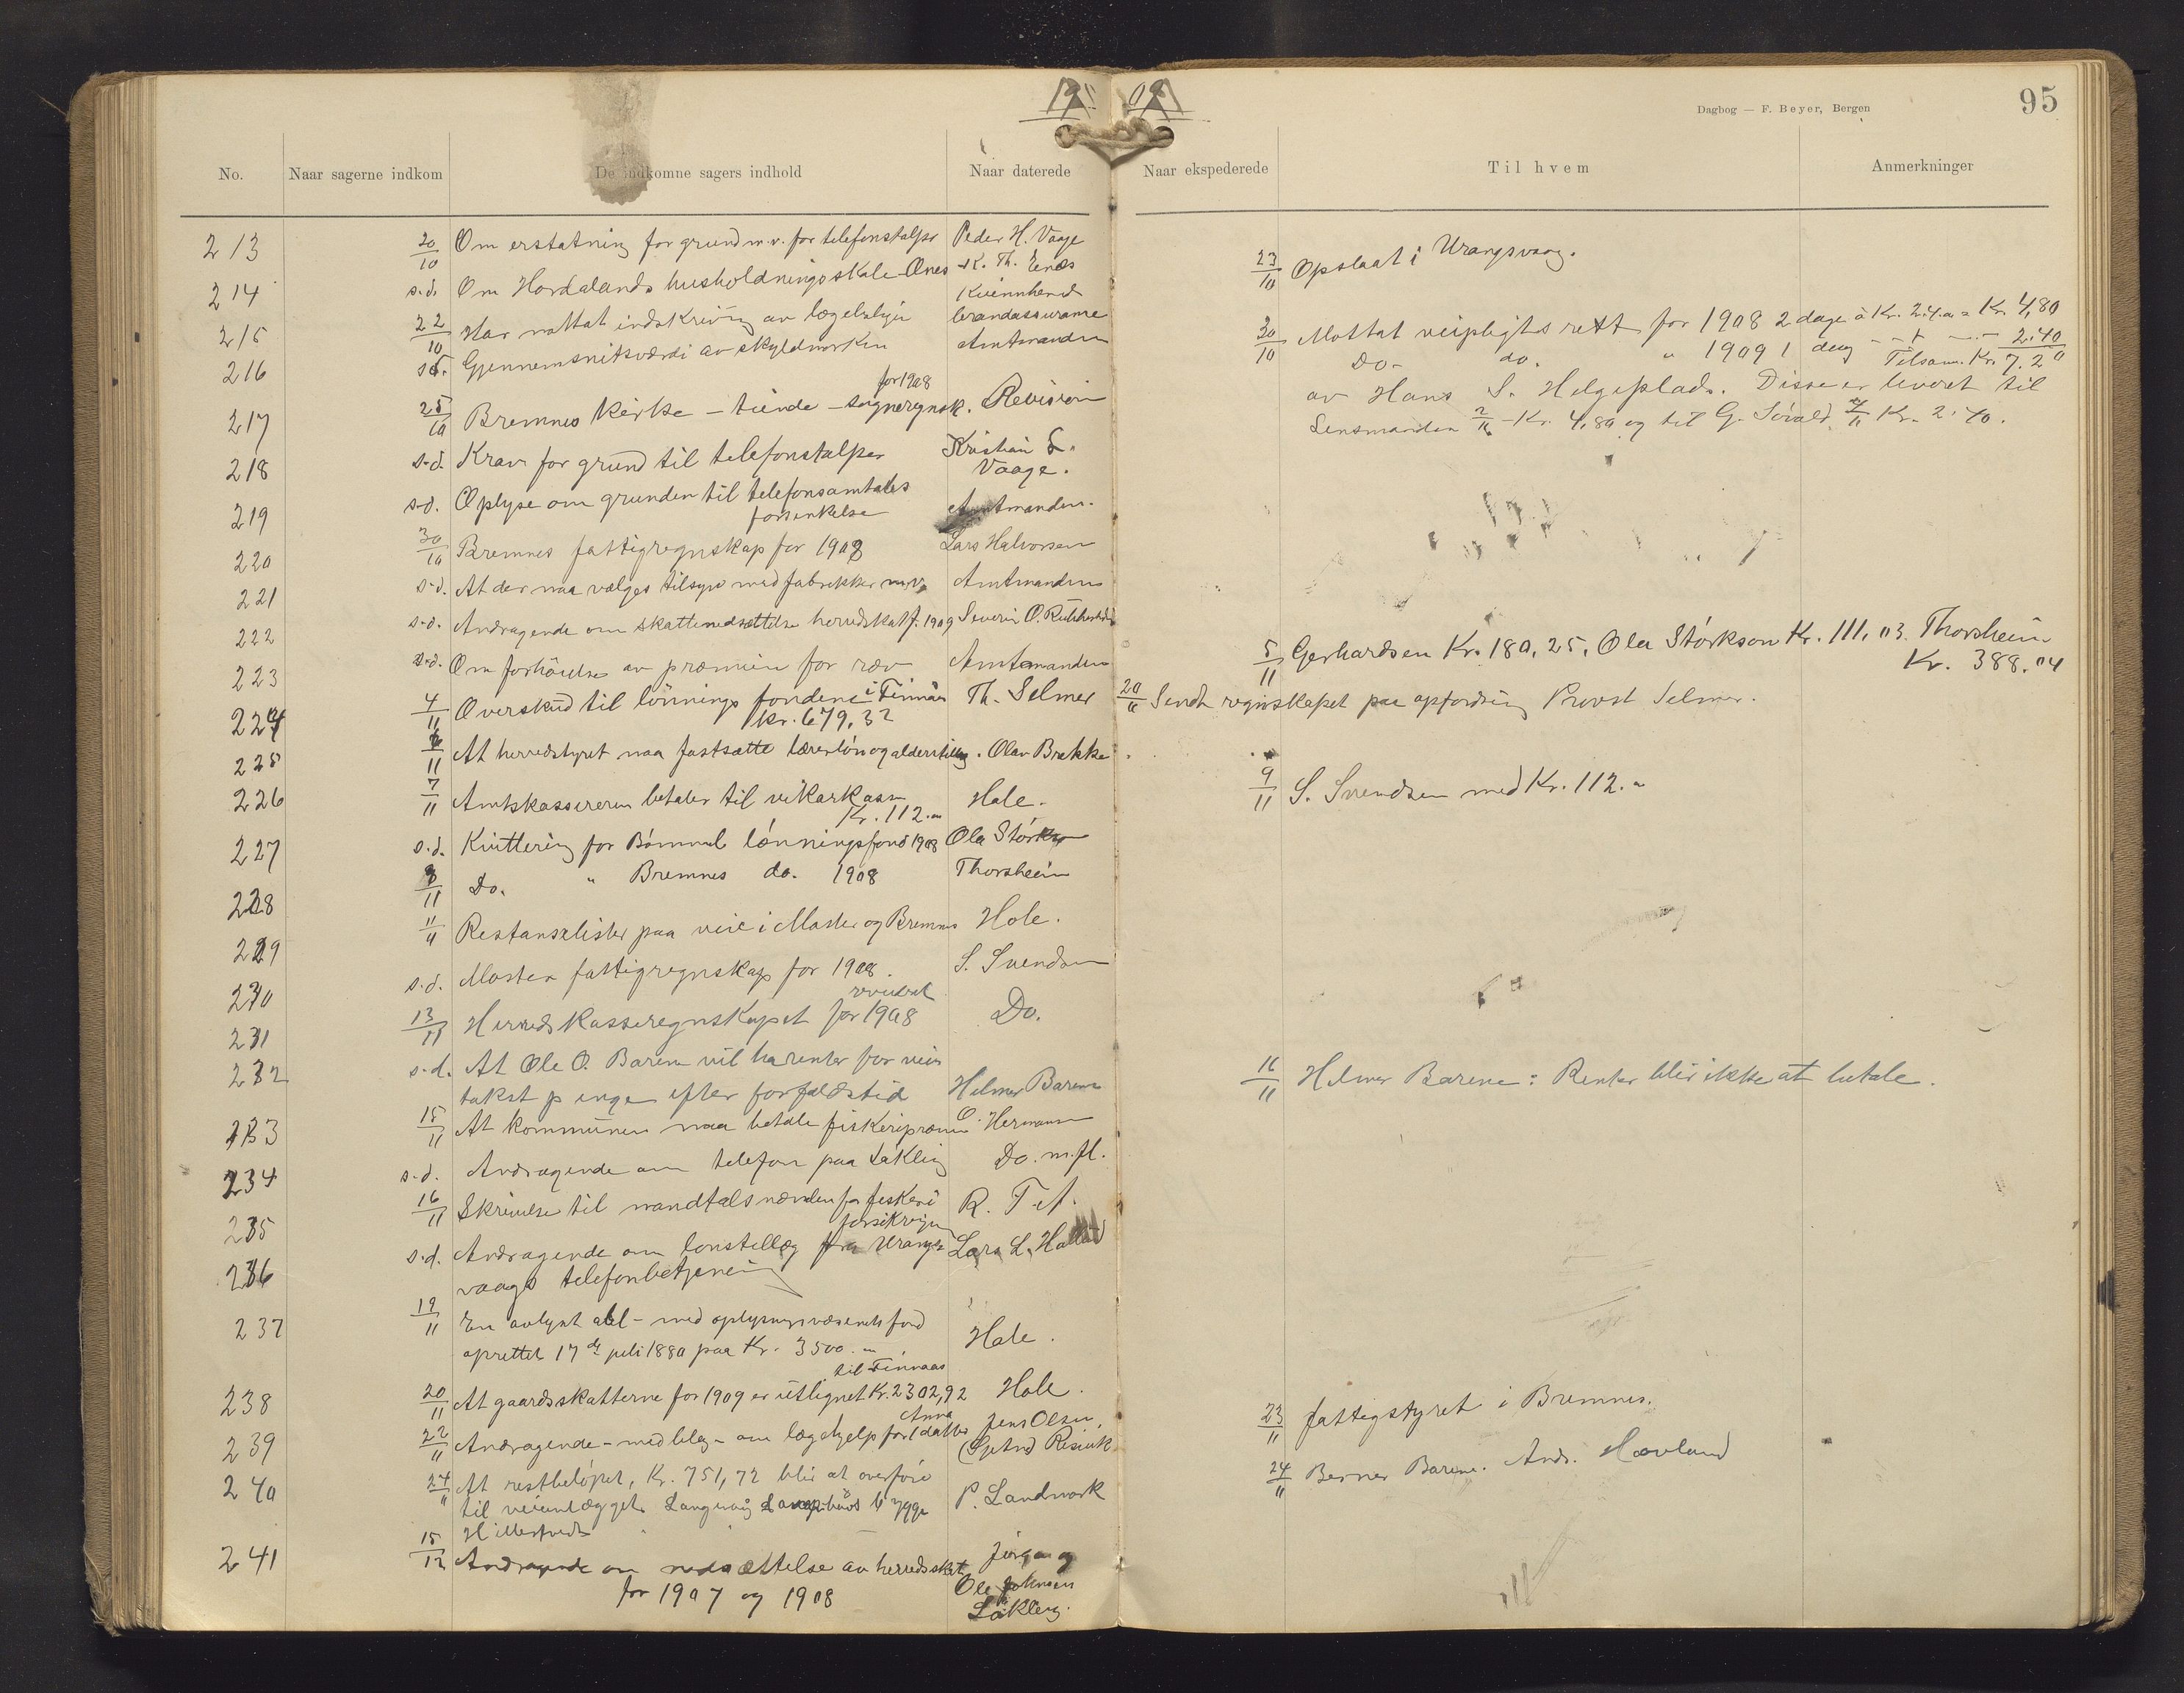 19 09
Dagbog — F. Beyer, Bergen
95
No. Naar sagerne indkom De indkomne sagers indhold Naar daterede
213 20/10 Om erstatning for grund m.v. for telefonstolper Peder H. Vaage
214 s.d. Om Hordalands husholdningsskole Ænes K. Th. Enæs
Kvinnherad
215 22/10 Har mottat indskrivning av
216 s.d. Gjennemsnitsværdi av skyldmarken Amtmanden
for 1908
217 25/10 Bremnes kirke - tiende - sogneregnsk. Revision
218 s.d. Krav for grund til telefonstolper Kristian L.
Vaage.
219 s.d. Oplyse om grunden til telefonsamtales Amtmanden.
forsinkelse
220 30/10 Bremnes fattigregnskap for 1908 Lars Halvorsen
221 s.d. At der maa vælges tilsyn med fabrikker m.v. Amtmanden
222 s.d. Andragende om skattenedsættelse herredskat f. 1909 Severin O.
223 s.d. Om forhøielse av præmien for ræv Amtmanden
224 4/11 Overskud til lønnings fondene i Finnaas Th. Selmer
kr. 679,32
225 6/11 At herredstyret maa fastsætte lærerløn og alderstillæg. Olav Brekke
226 7/11 Amtskassereren betaler til vikarkassa Hole.
Kr. 112.
227 s.d. Kvittering for Bømmel lønningsfond 1908 Ola Størkson
228 8/11 Do. " Bremnes do. 1908 Thorsheim
229 11/11 Restanselister paa veie i Moster og Bremnes Hole.
230 s.d. Moster fattigregnskap for 1908. S. Svendsen
revideret
231 13/11 Herredskasseregnskapet for 1908 Do.
232 s.d. At Ole O. Barene vil ha renter for vei
takst penge efter forfaldstid Helmer Barene
233 15/11 At kommunen maa betale fiskeripræmie O. Hermansen
234 s.d. Andragende om telefon paa Løkling Do. m.fl.
235 16/11 Skrivelse til mandtalsnevnden for fiskeri R. T. A.
forsikringen
236 s.d. Andragende om lønstillæg fra Urangs Lars L.
vaags telefonbetjening
237 19/11 En avlyst obl - med oplysningsvæsenets fond
oprettet 17de juli 1880 paa Kr. 3500.- Hole.
til Finnaas
238 20/11 At gaardsskatterne for 1909 er utlignet Kr. 2302,92 Hole.
Anna
239 22/11 Andragende - med bilag - om lægehjelp for datter Jens Olsen,
240 24/11 At restbeløpet, Kr. 751,72 blir at overføre
til veianlægget Langevåg P. Landmark
241 15/12 Andragende om nedsættelse av herredsskat Jørgen og
for 1907 og 1908 Ole Johnsen
Løkling.
Naar ekspederede Til hvem Anmerkninger
23/10 Opslaat i Urangsvaag.
30/10 Mottat veipligtsrett for 1908 2 dage à Kr. 2.40 = Kr. 4,80
Do- do. " 1909 1 dag 2.40
Tilsam. Kr. 7.20
av Hans S. Helgeplads. Disse er leveret til
Lensmanden 2/11 - Kr. 4,80 og til G. Kr. 2.40.
5/11 Gerhardsen Kr. 180,25, Ola Størkson Kr. 111,03. Thorsheim
Kr. 388.04
20/11 Sendt regnskapet paa opfordring Provst Selmer.
9/11 S. Svendsen med Kr. 112.
16/11 Helmer Barene: Renter blir ikke at betale.
23/11 fattigstyret i Bremnes.
24/11 Berner Barene. Andr. Hovland